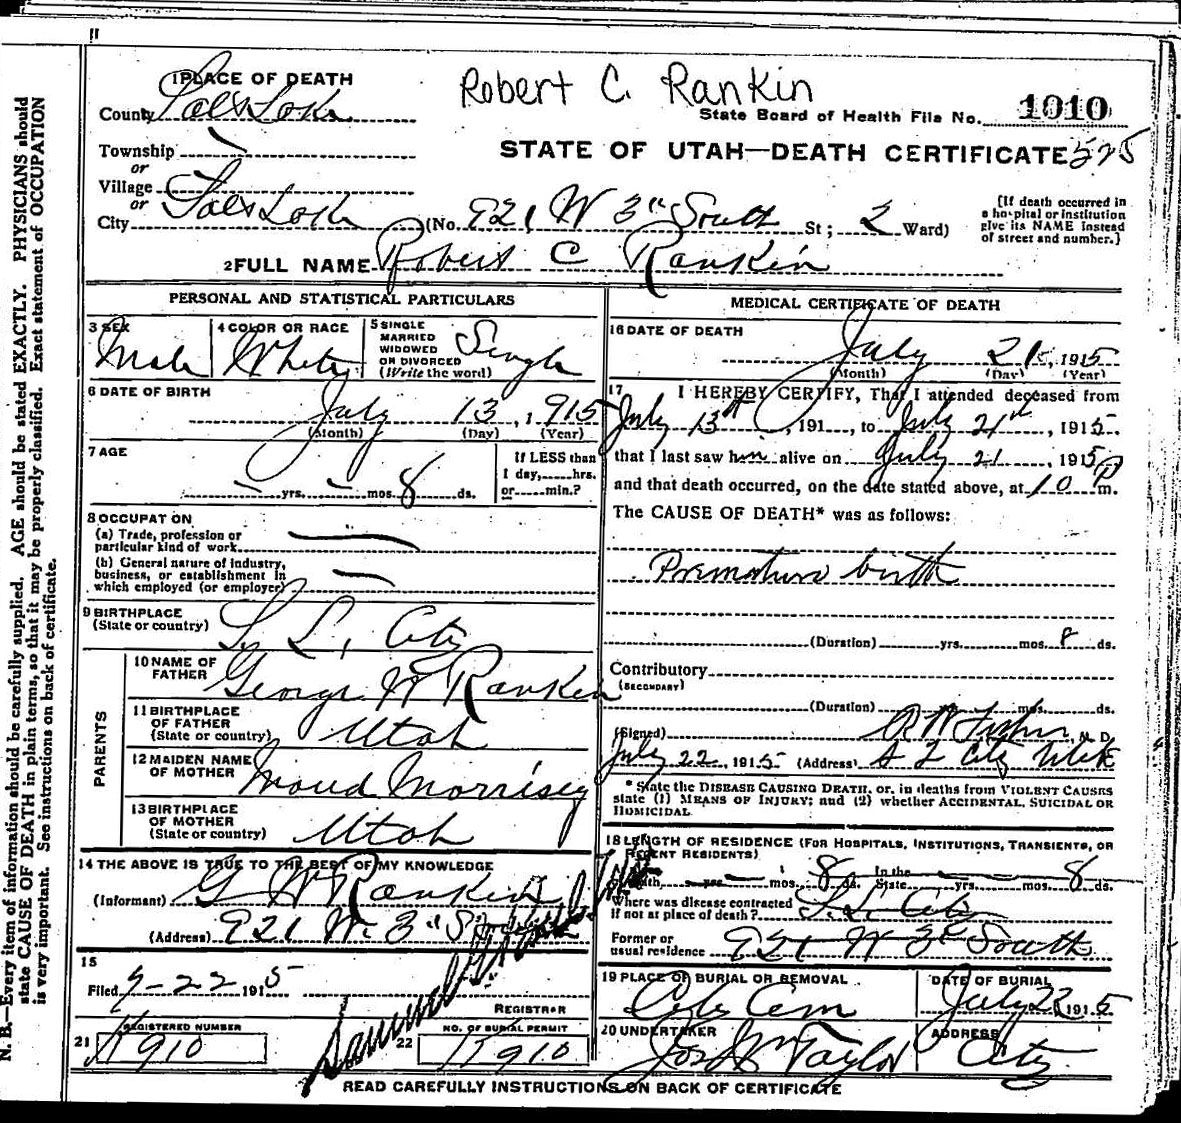 Robert C. Rankin
1 PLACE OF DEATH
County Salt Lake
State Board of Health File No. 1010
STATE OF UTAH—DEATH CERTIFICATE 525
Township
or
Village
or
City Salt Lake (No. 921 W 3" South St; 2 Ward)
[If death occurred in
a hospital or institution
give its NAME instead
of street and number.]
2 FULL NAME Robert C Rankin
PERSONAL AND STATISTICAL PARTICULARS
3 SEX Male
4 COLOR OR RACE White
5 SINGLE
MARRIED
WIDOWED
OR DIVORCED
(Write the word) Single
6 DATE OF BIRTH
July 13, 1915
(Month) (Day) (Year)
7 AGE
— yrs. — mos. 8 ds.
If LESS than
1 day, hrs.
or min.?
8 OCCUPATION
(a) Trade, profession or
particular kind of work
(b) General nature of industry,
business, or establishment in
which employed (or employer)
9 BIRTHPLACE
(State or country) S. L. City
PARENTS
10 NAME OF
FATHER George W Rankin
11 BIRTHPLACE
OF FATHER
(State or country) Utah
12 MAIDEN NAME
OF MOTHER Maud Morrisey
13 BIRTHPLACE
OF MOTHER
(State or country) Utah
14 THE ABOVE IS TRUE TO THE BEST OF MY KNOWLEDGE
(Informant) G W Rankin
(Address) 921 W. 3" South
15
Filed 7-22 1915
REGISTRAR
21 REGISTERED NUMBER
K 910
22 NO. OF BURIAL PERMIT
K 910
MEDICAL CERTIFICATE OF DEATH
16 DATE OF DEATH
July 21, 1915
(Month) (Day) (Year)
17 I HEREBY CERTIFY, That I attended deceased from
July 13th, 191 , to July 21st, 1915.
that I last saw him alive on July 21, 1915
and that death occurred, on the date stated above, at 10 P m.
The CAUSE OF DEATH* was as follows:
Premature birth
(Duration) yrs. mos. 8 ds.
Contributory
(SECONDARY)
(Duration) yrs. mos. ds.
(Signed) M. D.
July 22, 1915 (Address) S L City Utah
* State the DISEASE CAUSING DEATH, or, in deaths from VIOLENT CAUSES
state (1) MEANS OF INJURY; and (2) whether ACCIDENTAL, SUICIDAL OR
HOMICIDAL
18 LENGTH OF RESIDENCE (FOR HOSPITALS, INSTITUTIONS, TRANSIENTS, OR
RECENT RESIDENTS)
yrs. — mos. 8 ds. In the State yrs. — mos. 8 ds.
Where was disease contracted
if not at place of death? S. L. City
Former or
usual residence 921 W 3" South
19 PLACE OF BURIAL OR REMOVAL
City Cem
DATE OF BURIAL
July 22 1915
20 UNDERTAKER
Jos Wm Taylor
ADDRESS
City
READ CAREFULLY INSTRUCTIONS ON BACK OF CERTIFICATE
N. B.—Every item of information should be carefully supplied. AGE should be stated EXACTLY. PHYSICIANS should
state CAUSE OF DEATH in plain terms, so that it may be properly classified. Exact statement of OCCUPATION
is very important. See instructions on back of certificate.